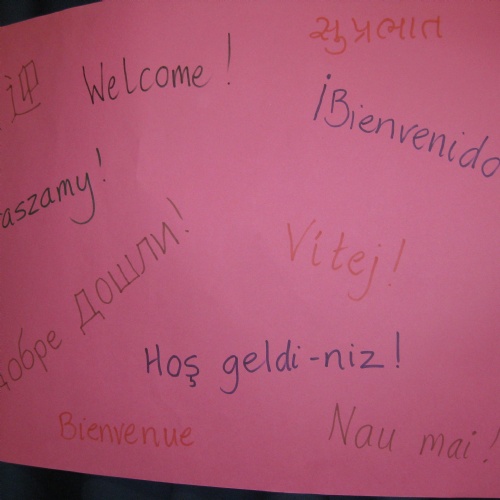 迎
Welcome!
સુપ્રભાત
¡Bienvenido
aszamy!
Добре дошли!
Vítej!
Hoş geldi-niz!
Bienvenue
Nau mai!